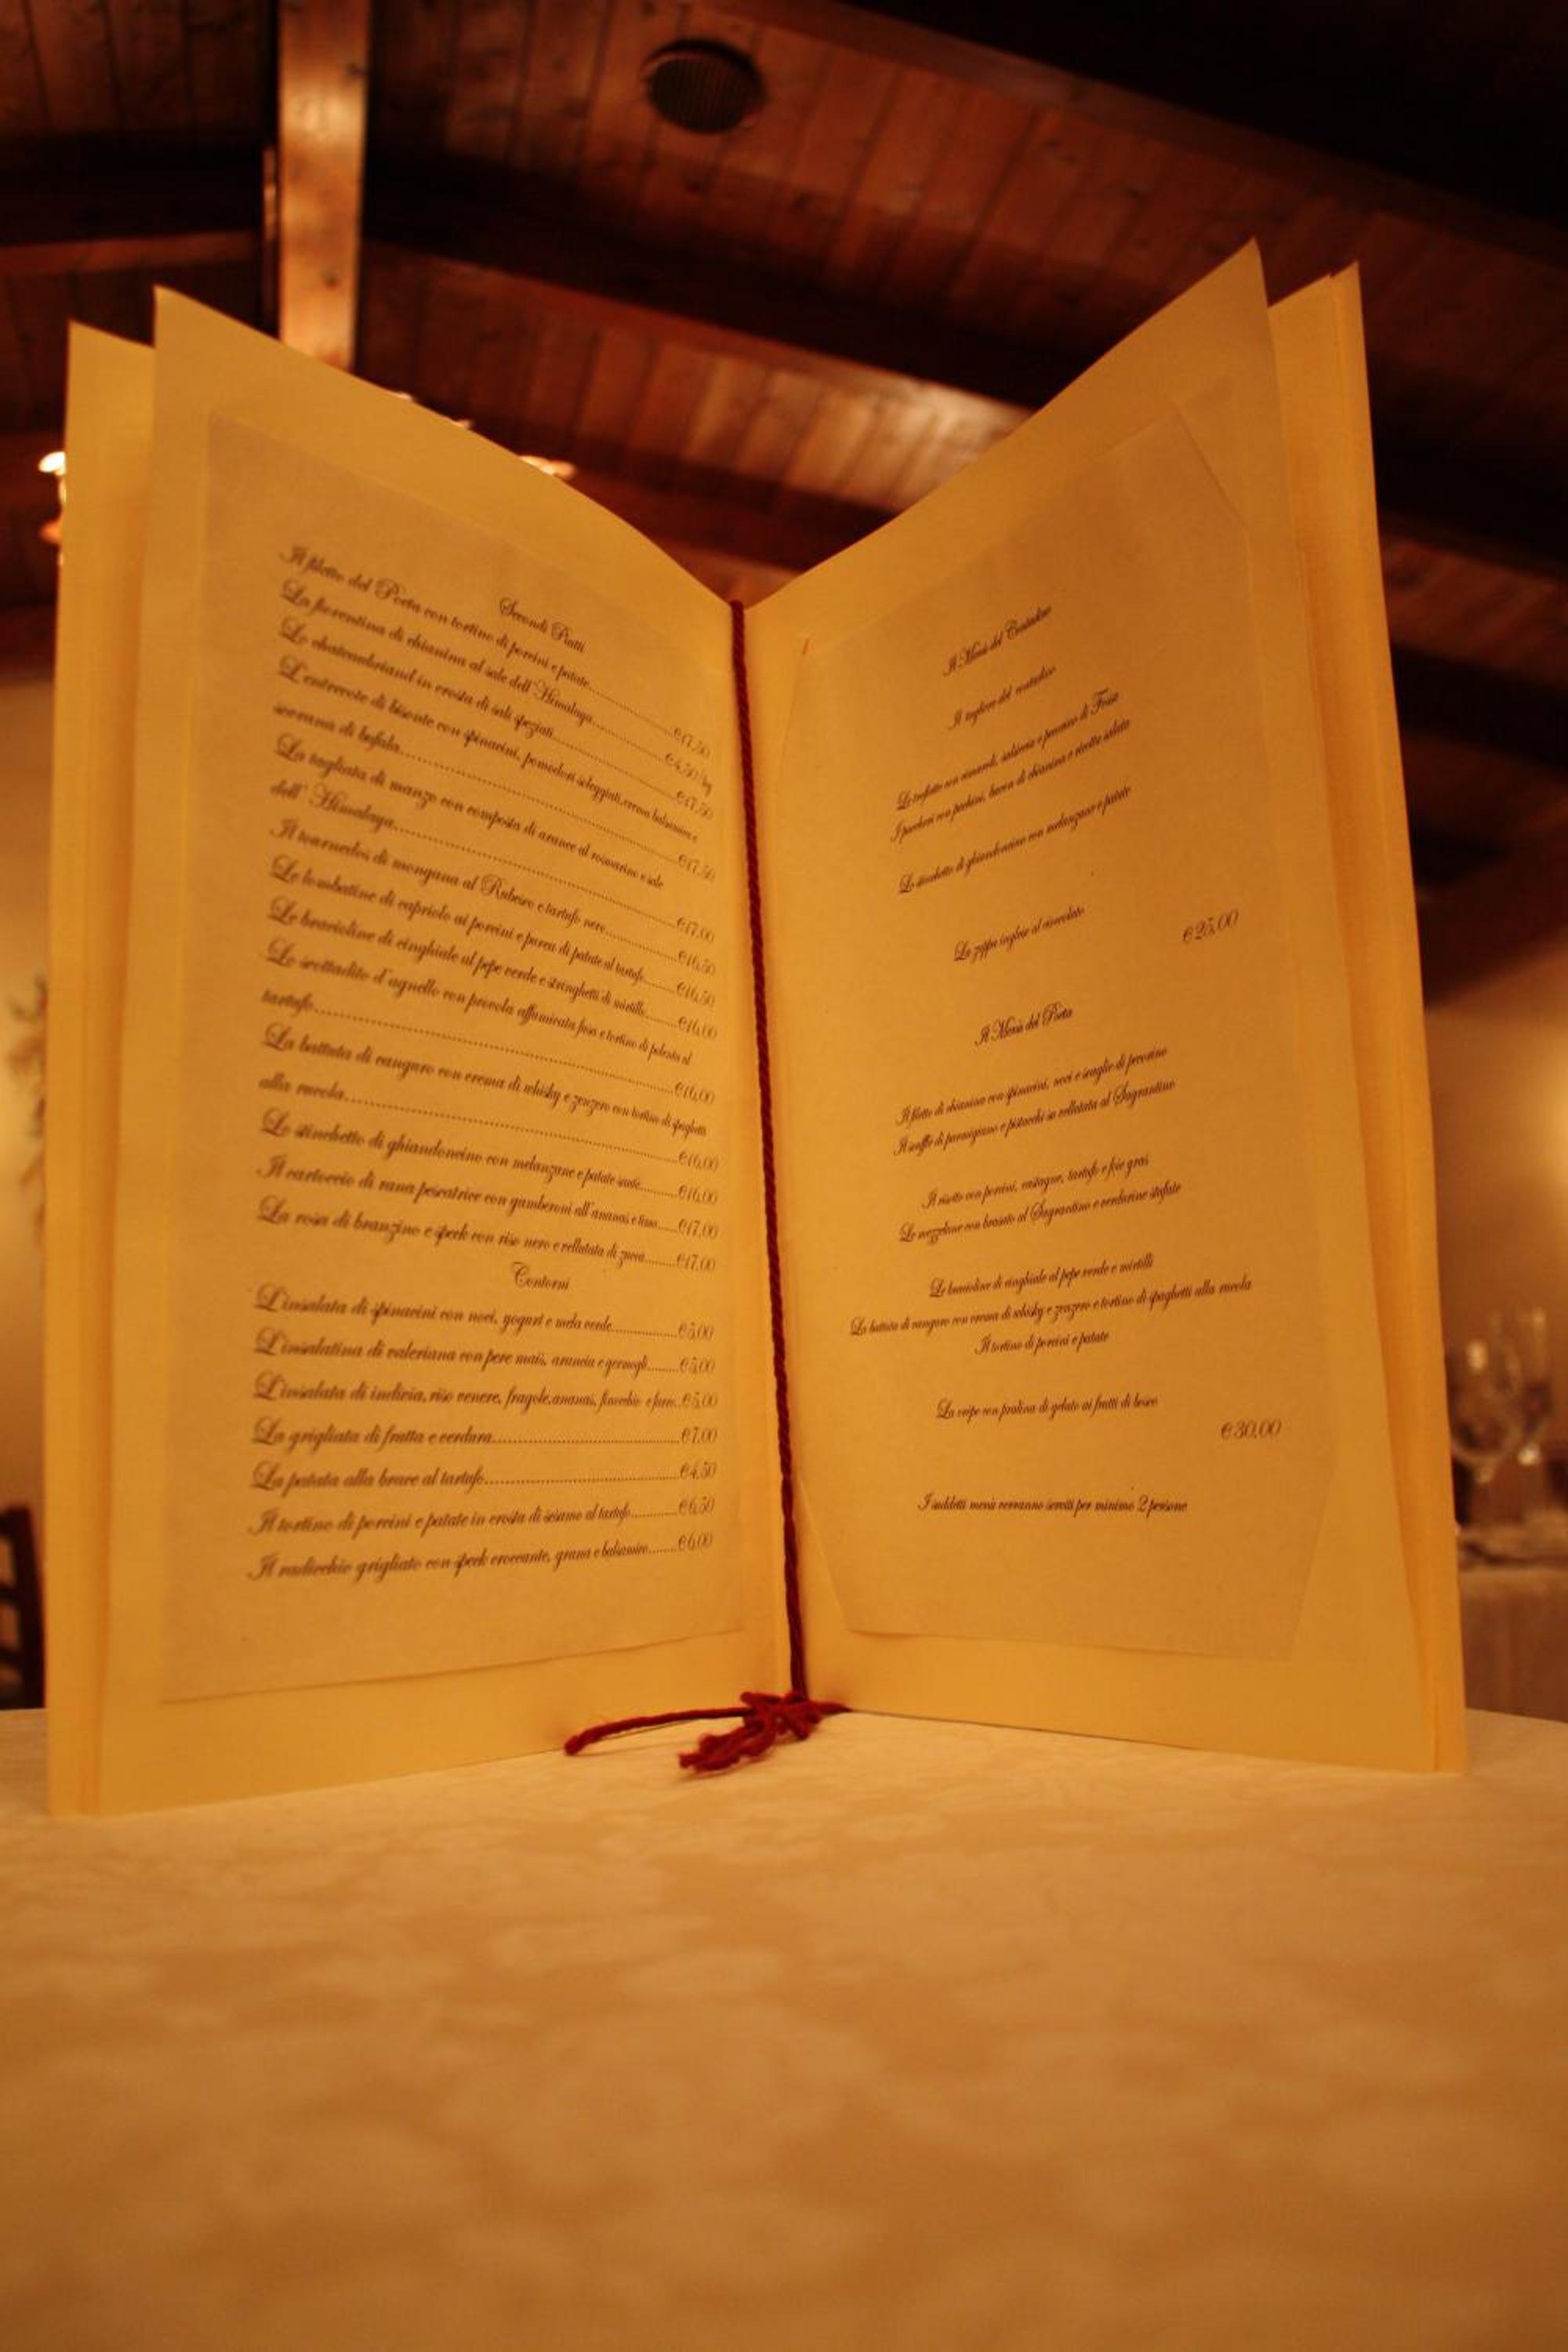 Secondi Piatti
Il filetto del Poeta con tortino di porcini e patate...............€17,50
La fiorentina di chianina al sale dell'Himalaya...............€4,50/hg
Lo chateaubriand in crosta di sali speziati...............€17,50
L'entrecote di bisonte con spinacini, pomodori soleggiati, crema balsamica e
scorana di bufala...............€17,50
La tagliata di manzo con composta di arance al rosmarino e sale
dell'Himalaya...............€17,00
Il tournedos di mongana al Rubesco e tartufo nero...............€16,50
Le lombatine di capriolo ai porcini e purea di patate al tartufo.........€16,50
Le bracioline di cinghiale al pepe verde e stringhetti di mirtillo.........€16,00
Lo scottadito d'agnello con provola affumicata fusa e tortino di polenta al
tartufo...............€16,00
La battuta di canguro con crema di whisky e zenzero con tortino di spaghetti
alla rucola...............€16,00
Lo stinchetto di ghiandoncino con melanzane e patate saute.........€16,00
Il cartoccio di rana pescatrice con gamberoni all'ananas e timo......€17,00
La rosa di branzino e speck con riso nero e vellutata di zucca.........€17,00
Contorni
L'insalata di spinacini con noci, yogurt e mela verde...............€5,00
L'insalatina di valeriana con pere mais, arancia e germogli.........€5,00
L'insalata di indivia, riso venere, fragole, ananas, finocchio e farro..€5,00
La grigliata di frutta e verdura...............€7,00
La patata alla brace al tartufo...............€4,50
Il tortino di porcini e patate in crosta di sesamo al tartufo.........€6,50
Il radicchio grigliato con speck croccante, grana e balsamico.........€6,00
Il Menù del Contadino
Il tagliere del contadino
Le trofiette con pomodori, salsiccia e pecorino di Fossa
I paccheri con pachini, bacon di chianina e ricotta salata
Lo stinchetto di ghiandoncino con melanzane e patate
La zuppa inglese al cioccolato
€25,00
Il Menù del Poeta
Il filetto di chianina con spinacini, noci e scaglie di pecorino
Il soufflè di parmigiano e pistacchi su vellutata al Sagrantino
Il risotto con porcini, castagne, tartufo e foie gras
Le mezzelune con brasato al Sagrantino e verdurine stufate
Le bracioline di cinghiale al pepe verde e mirtilli
La battuta di canguro con crema di whisky e zenzero e tortino di spaghetti alla rucola
Il tortino di porcini e patate
La crêpe con pralina di gelato ai frutti di bosco
€30,00
I suddetti menù verranno serviti per minimo 2 persone